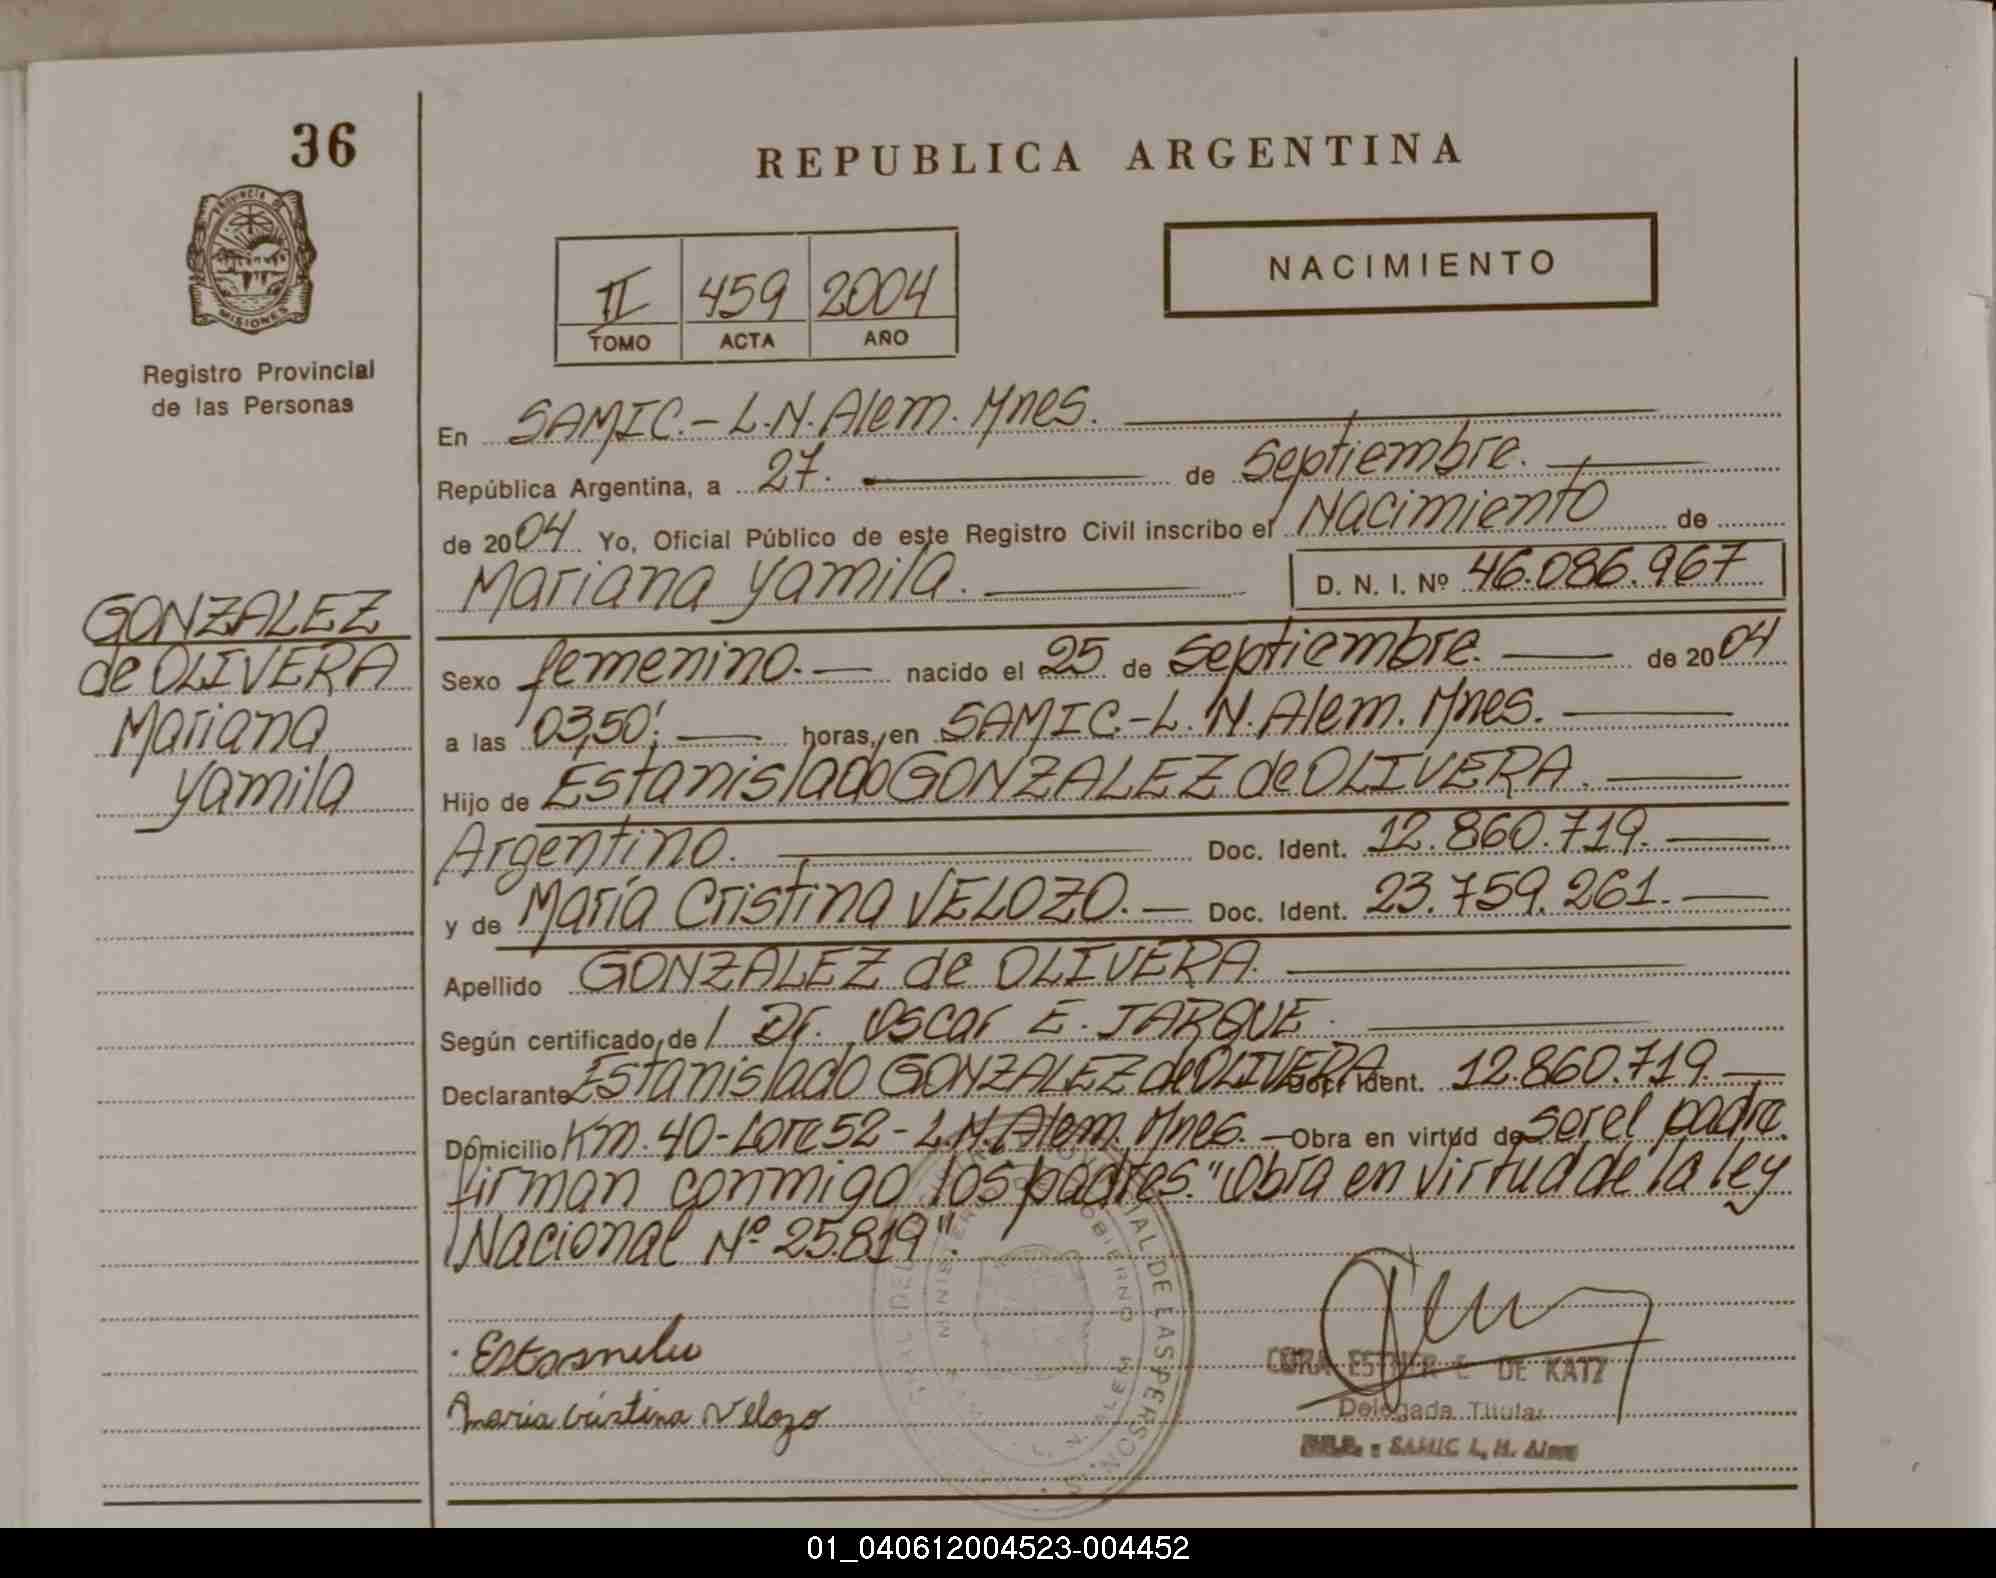 36
PROVINCIA DE
MISIONES
Registro Provincial
de las Personas
GONZALEZ
de OLIVERA
Mariana
Yamila
REPUBLICA ARGENTINA
II 459 2004
TOMO ACTA AÑO
NACIMIENTO
En SAMIC.- L.N. Alem. Mnes.
República Argentina, a 27. de Septiembre.
de 2004 Yo, Oficial Público de este Registro Civil inscribo el Nacimiento de
Mariana Yamila. D. N. I. Nº 46.086.967
Sexo femenino.- nacido el 25 de Septiembre. de 2004
a las 03,50'. horas, en SAMIC.-L.N. Alem. Mnes.
Hijo de Estanislado GONZALEZ de OLIVERA.
Argentino. Doc. Ident. 12.860.719.
y de María Cristina VELOZO.- Doc. Ident. 23.759.261.
Apellido GONZALEZ de OLIVERA.
Según certificado de Dr. Oscar E. JARQUE.
Declarante Estanislado GONZALEZ de OLIVERA Doc. Ident. 12.860.719.
Domicilio Km. 40-Lote 52- L.N. Alem. Mnes. Obra en virtud de ser el padre.
firman conmigo los padres. "Obra en virtud de la ley
Nacional Nº 25.819".
Maria Cristina Velozo
DE KATZ
Delegada Titular
SAMIC L. N. Alem
01_040612004523-004452